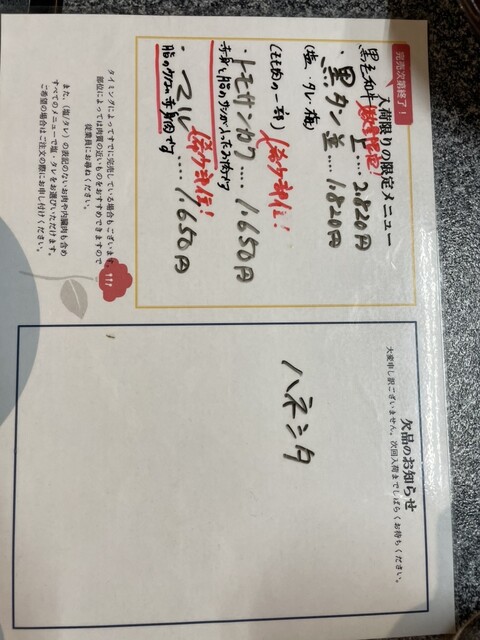 完売次第終了！
入荷限りの限定メニュー
黒毛和牛 数量限定！
・黒タン 上.... 2.820円
並.... 1.820円
(塩・タレ・梅)
(モモ肉の一部) 希少部位！
・トモサンカク.... 1.650円
赤身と脂のサシが入ったお肉です
希少部位！
・マル.... 1.650円
脂の少ない赤身肉です
タイミングによってすでに完売している場合もございます。
部位によっては肉質の近いものをおすすめできますので
従業員にお尋ねください。
また、(塩/タレ)の表記のないお肉や内臓肉も含め
すべてのメニューで塩・タレをお選びいただけます。
ご希望の場合はご注文の際にお申し付けください。
欠品のお知らせ
大変申し訳ございません。次回入荷までしばらくお待ちください。
ハネシタ